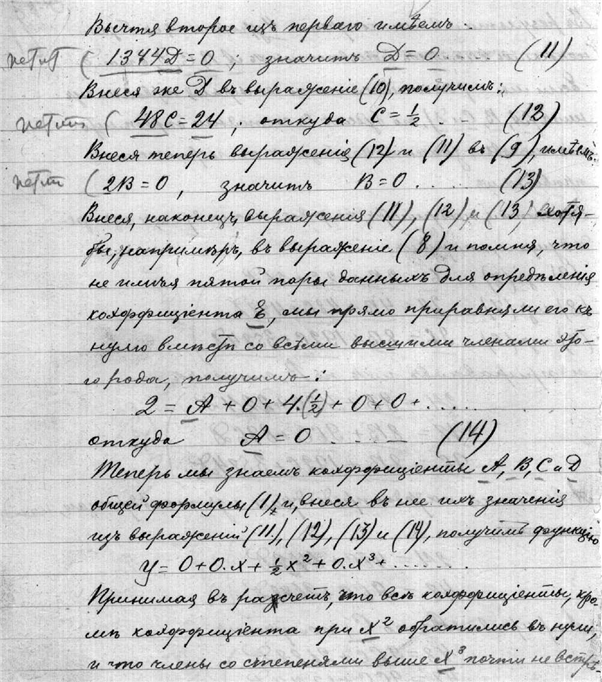 Вычтя второе изъ перваго имѣемъ:
петит ( 1344D = 0 ; значитъ D = 0 (11)
Внеся же D въ выраженіе (10), получимъ:
петит ( 48C = 24, откуда C = ½ . . . (12)
Внеся теперь выраженія (12) и (11) въ (9), имѣемъ:
петит ( 2B = 0, значитъ B = 0 . . . . (13)
Внеся, наконецъ, выраженія (11), (12) и (13) хотя-
бы, напримѣръ, въ выраженіе (8) и помня, что
не имѣя пятой пары данныхъ для опредѣленія
коэффиціента E, мы прямо приравняли его къ
нулю вмѣстѣ со всѣми высшими членами это-
го рода, получимъ:
2 = A + 0 + 4.(½) + 0 + 0 + . . . . . .
откуда A = 0 . . . . . (14)
Теперь мы знаемъ коэффиціенты A, B, C и D
общей формулы (1), и, внеся въ нее ихъ значенія
изъ выраженій (11), (12), (13) и (14), получимъ функцію
y = 0 + 0.x + ½ x² + 0.x³ + . . . . . . .
Принимая въ разсчетъ, что всѣ коэффиціенты, кро-
мѣ коэффиціента при x² обратились въ нули,
и что члены со степенями выше x³ почти не встрѣ-